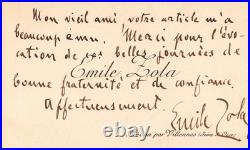 Mon vieil ami, votre article m'a
beaucoup ému. Merci pour l'évo-
cation de ces belles journées de
Emile Zola
bonne fraternité et de confiance.
Affectueusement.
Emile Zola
par Villennes (Seine et Oise)